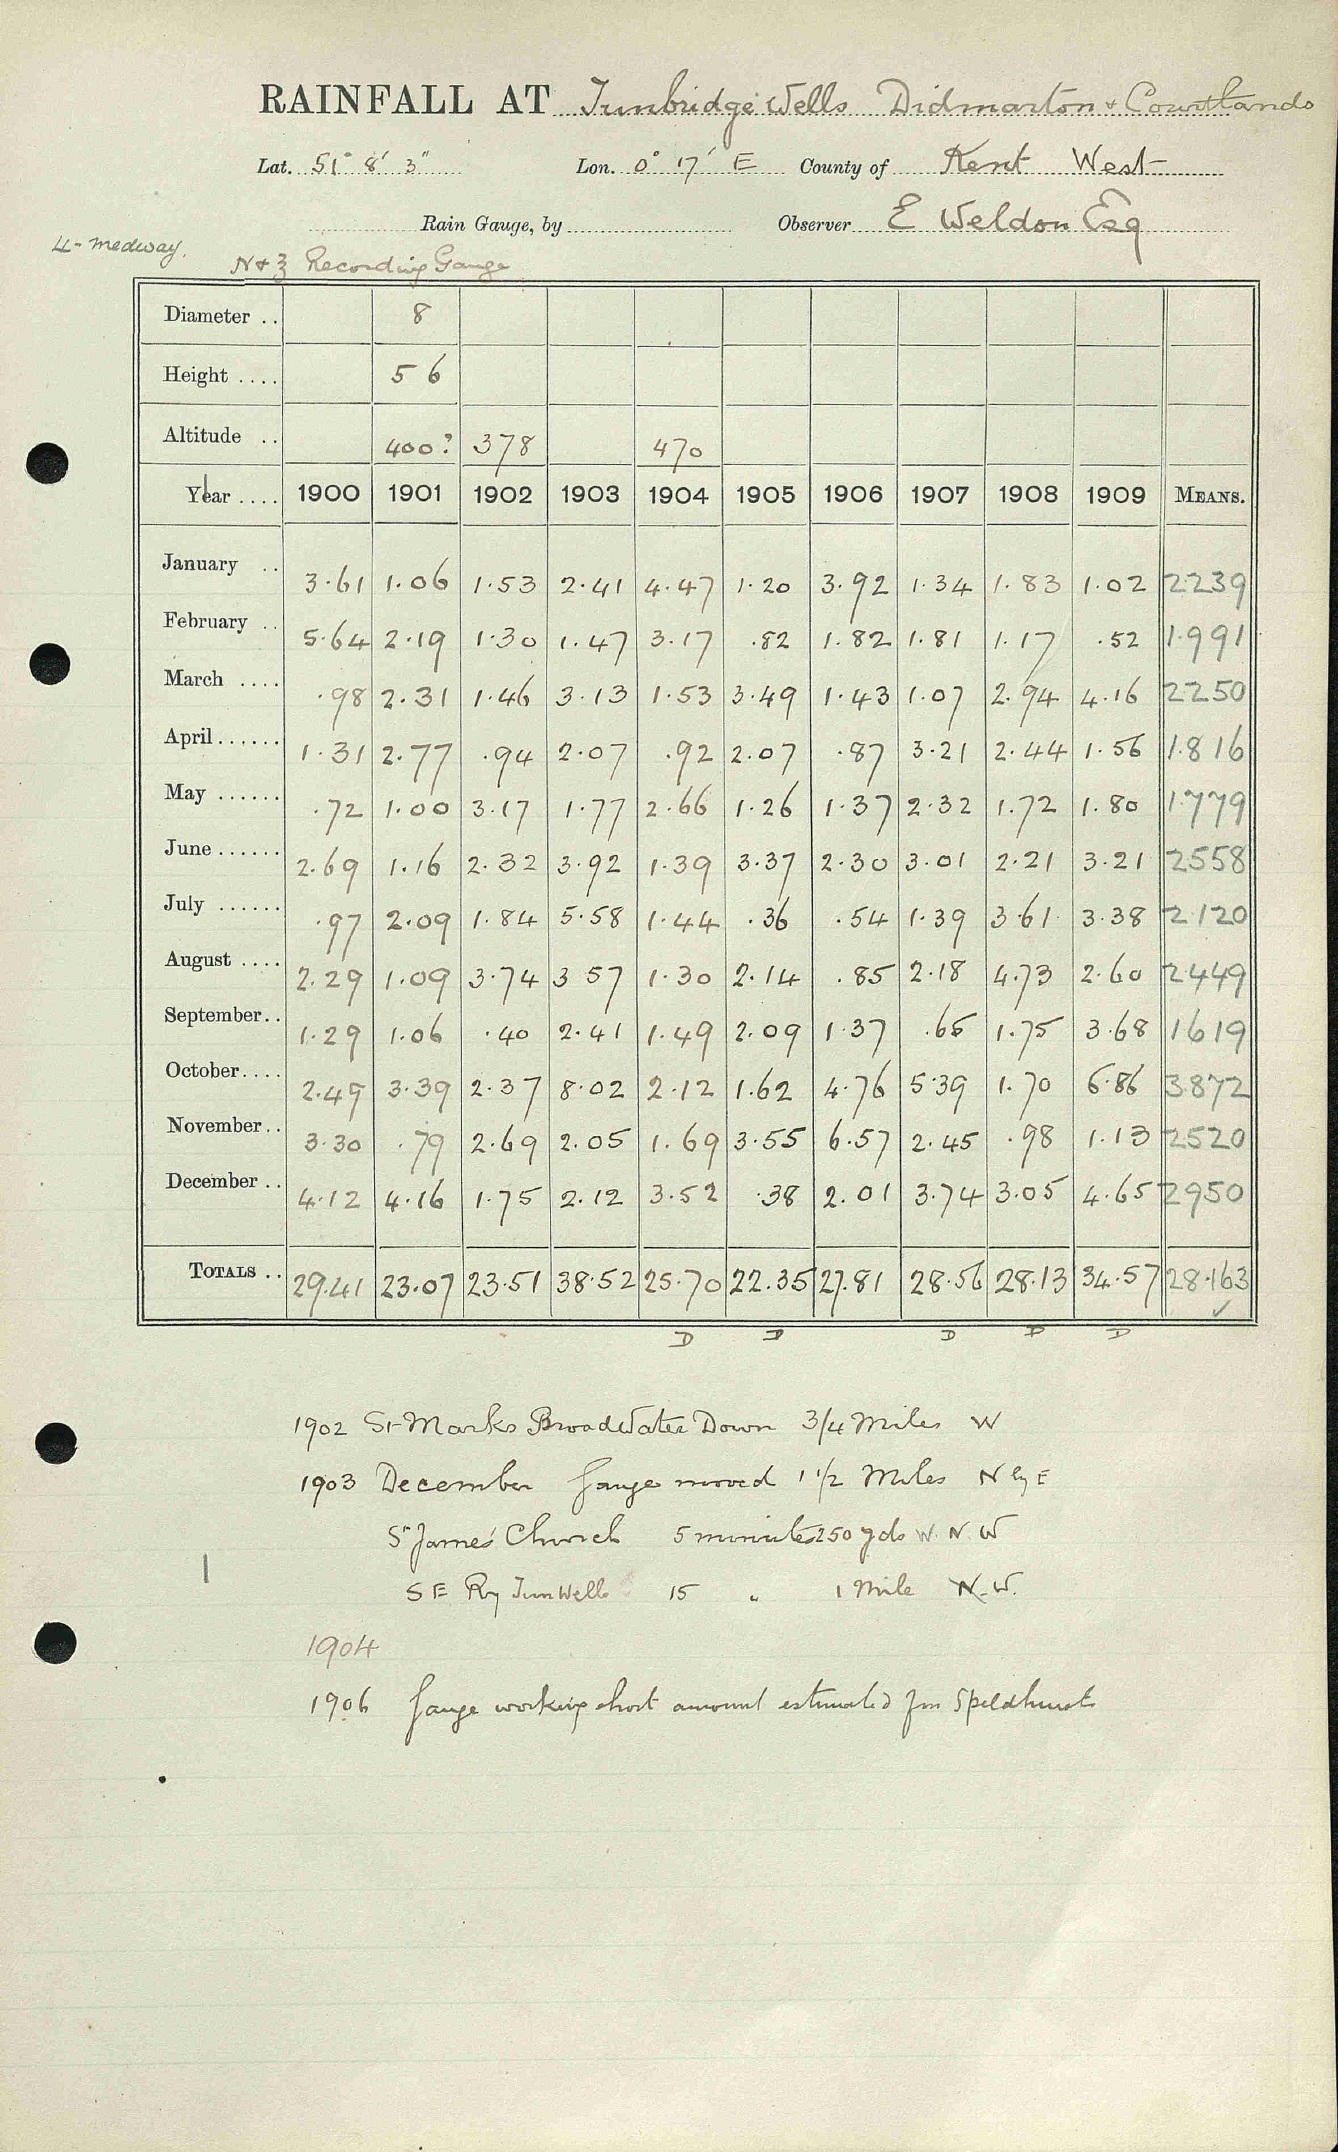 RAINFALL AT Tunbridge Wells Didmarton & Courtlands
Lat. 51° 8' 3" Lon. 0° 17' E County of Kent West
Rain Gauge, by Observer E Weldon Esq
4- Medway.
N & Z Recording Gauge
Diameter .. 8
Height .... 5 6
Altitude .. 400? 378 470
Year .... 1900 1901 1902 1903 1904 1905 1906 1907 1908 1909 MEANS.
January .. 3.61 1.06 1.53 2.41 4.47 1.20 3.92 1.34 1.83 1.02 2239
February .. 5.64 2.19 1.30 1.47 3.17 .82 1.82 1.81 1.17 .52 1.991
March .... .98 2.31 1.46 3.13 1.53 3.49 1.43 1.07 2.94 4.16 2250
April ...... 1.31 2.77 .94 2.07 .92 2.07 .87 3.21 2.44 1.56 1.816
May ...... .72 1.00 3.17 1.77 2.66 1.26 1.37 2.32 1.72 1.80 1.779
June ...... 2.69 1.16 2.32 3.92 1.39 3.37 2.30 3.01 2.21 3.21 2558
July ...... .97 2.09 1.84 5.58 1.44 .36 .54 1.39 3.61 3.38 2.120
August .... 2.29 1.09 3.74 3 57 1.30 2.14 .85 2.18 4.73 2.60 2449
September .. 1.29 1.06 .40 2.41 1.49 2.09 1.37 .65 1.75 3.68 1619
October .... 2.49 3.39 2.37 8.02 2.12 1.62 4.76 5.39 1.70 6.86 3872
November .. 3.30 .79 2.69 2.05 1.69 3.55 6.57 2.45 .98 1.13 2520
December .. 4.12 4.16 1.75 2.12 3.52 .38 2.01 3.74 3.05 4.65 2950
TOTALS .. 29.41 23.07 23.51 38.52 25.70 22.35 27.81 28.56 28.13 34.57 28.163
D D D D D
1902 St Marks Broadwater Down 3/4 Miles W
1903 December Gauge moved 1 1/2 Miles N by E
St James' Church 5 minutes 250 yds W. N. W
S E Ry Tun Wells 15 " 1 Mile N. W.
1904
1906 Gauge working short amount estimated fm Speldhurst